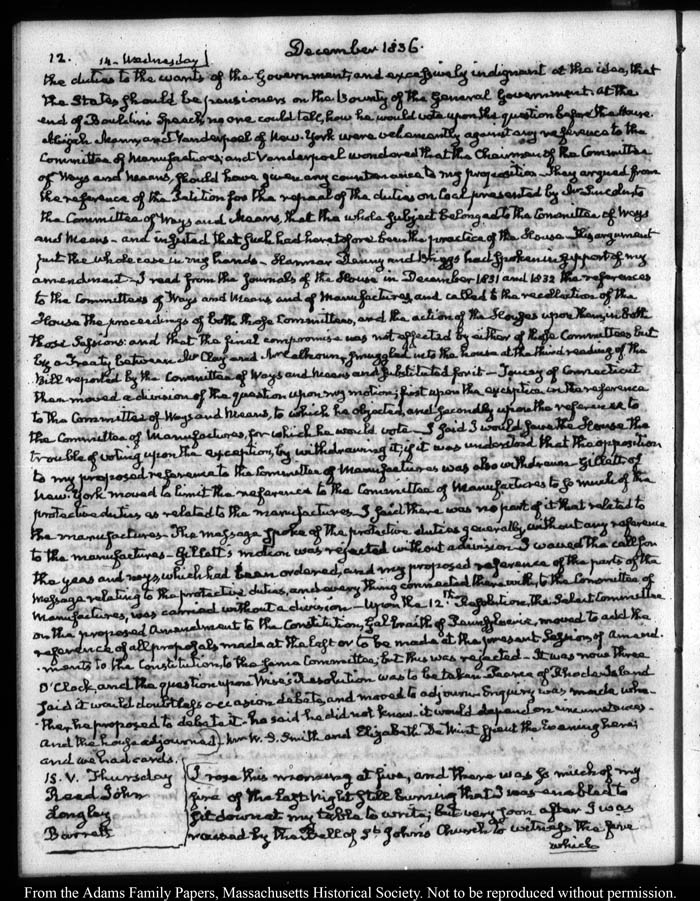 12. 14. Wednesday
December 1836.
the duties to the wants of the Government, and excessively indignant at the idea, that
the States should be pensioners on the Bounty of the General Government. At the
end of Bouldin's Speech, no one could tell, how he would vote upon the question before the House.
Abijah Mann, and Vanderpoel of New-York were vehemently against any reference to the
Committee of Manufactures; and Vanderpoel wondered that the Chairman of the Committee
of Ways and Means, should have given any countenance to my proposition. They argued from
the reference of the Petition for the repeal of the duties on Coal presented by Mr Lincoln, to
the Committee of Ways and Means, that the whole subject belonged to the Committee of Ways
and Means - and insisted that such had heretofore been the practice of the House. This argument
put the whole case in my hands. Hannar Denny and Briggs had spoken in support of my
amendment. I read from the Journals of the House in December 1831 and 1832 the references
to the Committees of Ways and Means and of Manufactures, and called to the recollection of the
House the proceedings of both those Committees, and the action of the Houses upon them, in both
those Sessions: and that the final compromise was not effected by either of those Committees but
by a Treaty between Mr Clay and Mr Calhoun, smuggled into the house at the third reading of the
Bill reported by the Committee of Ways and Means and substituted for it - Toucey of Connecticut
then moved a division of the question upon my motion; first upon the exception in the reference
to the Committee of Ways and Means, to which he objected, and secondly upon the reference to
the Committee of Manufactures, for which he would vote - I said I would save the House the
trouble of voting upon the exception, by withdrawing it, if it was understood that the opposition
to my proposed reference to the Committee of Manufactures was also withdrawn. Gillett of
New-York moved to limit the reference to the Committee of Manufactures to so much of the
protective duties as related to the manufactures. I said there was no part of it that related to
the manufactures. The message spoke of the protective duties generally, without any reference
to the manufactures - Gillett's motion was rejected without a division. I waved the call for
the yeas and nays which had been ordered, and my proposed reference of the parts of the
Message relating to the protective duties, and every thing connected therewith, to the Committee of
Manufactures, was carried without a division - Upon the 12th Resolution, the Select Committee
on the proposed Amendment to the Constitution, Galbraith of Pennsylvania, moved to add the
reference of all proposals made at the last or to be made at the present Session of Amend-
ments to the Constitution, to the same Committee; but this was rejected - It was now three
O'Clock, and the question upon Wise's Resolution was to be taken. Pearce of Rhode-Island
said it would doubtless occasion debate, and moved to adjourn - Enquiry was made whe-
ther he proposed to debate it. he said he did not know. it would depend on circumstances -
and the house adjourned. W. S. Smith and Elizabeth De Wint spent the Evening here;
and we had cards.
15. V. Thursday
Read John
Longley
Barrett
I rose this morning at five, and there was so much of my
fire of the last night still burning that I was enabled to
sit down at my table to write; but very soon after I was
roused by the Bell of St Johns Church to witness the fire
which
From the Adams Family Papers, Massachusetts Historical Society. Not to be reproduced without permission.